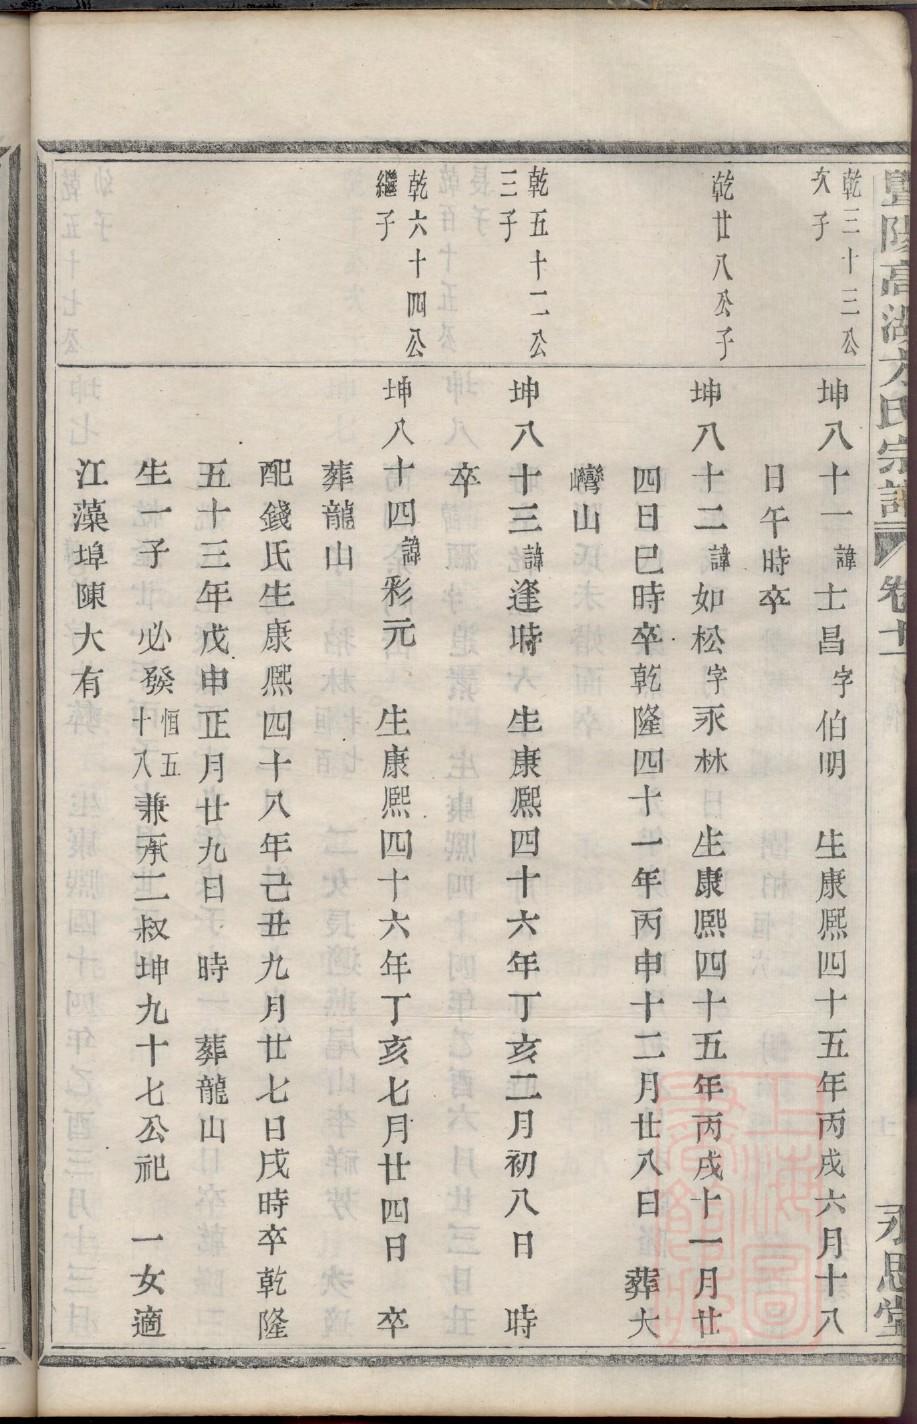 暨陽高湖方氏宗譜 卷十一 永思堂
乾三十三公
次子
坤八十一諱士昌字伯明 生康熙四十五年丙戌六月十八
日午時卒
乾廿八公子
坤八十二諱如松字永林 生康熙四十五年丙戌十一月廿
四日巳時卒乾隆四十一年丙申十二月廿八日 葬大
巒山
乾五十二公
三子
坤八十三諱逢時 生康熙四十六年丁亥二月初八日 時
卒
乾六十四公
繼子
坤八十四諱彩元 生康熙四十六年丁亥七月廿四日 卒
葬龍山
配錢氏生康熙四十八年己丑九月廿七日戌時卒乾隆
五十三年戊申正月廿九日 時 葬龍山
生一子必發恒五十八兼承二叔坤九十七公祀 一女適
江藻埠陳大有